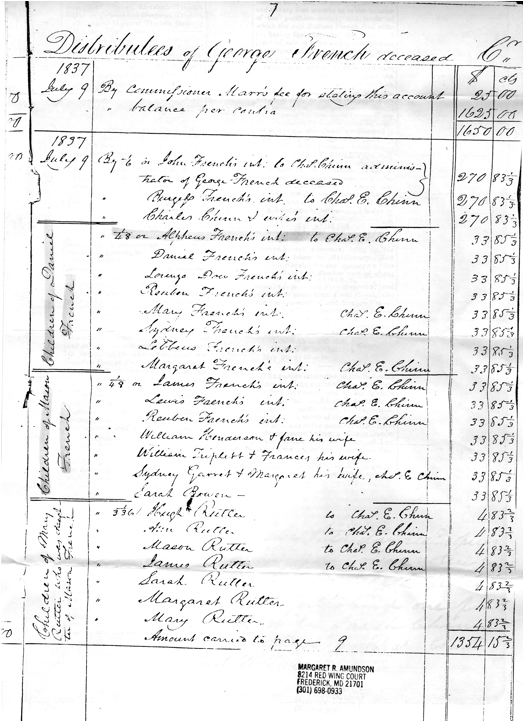 7
Distributees of George French deceased Cr.
1837 $ cts
July 9 By Commissioner Marr's fee for stating this account 25 00
" balance per contra 1625 00
1650 00
1837
July 9 By or John French's int: to Chas. Chinn adminis-
trator of George French deceased 270 83⅓
" Burgess French's int. to Chas. E. Chinn 270 83⅓
" Charles Chinn & wife's int: 270 83⅓
Children of Daniel French
" 1/48 or Alpheus French's int: to Chas. E. Chinn 33 85⅓
" Daniel French's int: 33 85⅓
" Lorenzo Dow French's int: 33 85⅓
" Reuben French's int: 33 85⅓
" Mary French's int: Chas. E. Chinn 33 85⅓
" Sydney French's int: Chas. E. Chinn 33 85⅓
" French's int: 33 85⅓
" Margaret French's int: Chas. E. Chinn 33 85⅓
Children of Mason French
" 1/48 or James French's int: Chas. E. Chinn 33 85⅓
" Lewis French's int: Chas. E. Chinn 33 85⅓
" Reuben French's int: Chas. E. Chinn 33 85⅓
" William Henderson & Jane his wife 33 85⅓
" William Triplett & Frances his wife 33 85⅓
" Sydney Garret & Margaret his wife, Chas. E. Chinn 33 85⅓
" Sarah Bowen — 33 85⅓
Children of Mary Rutter who was daugh-
ter of Mason French
" 1/336 Hugh Rutter to Chas. E. Chinn 4 83⅔
" Ann Rutter to Chas. E. Chinn 4 83⅔
" Mason Rutter to Chas. E. Chinn 4 83⅔
" James Rutter to Chas. E. Chinn 4 83⅔
" Sarah Rutter 4 83⅔
" Margaret Rutter 4 83⅔
" Mary Rutter 4 83⅔
Amount carried to page 9 1354 15⅔
MARGARET R. AMUNDSON
8214 RED WING COURT
FREDERICK, MD 21701
(301) 698-0933